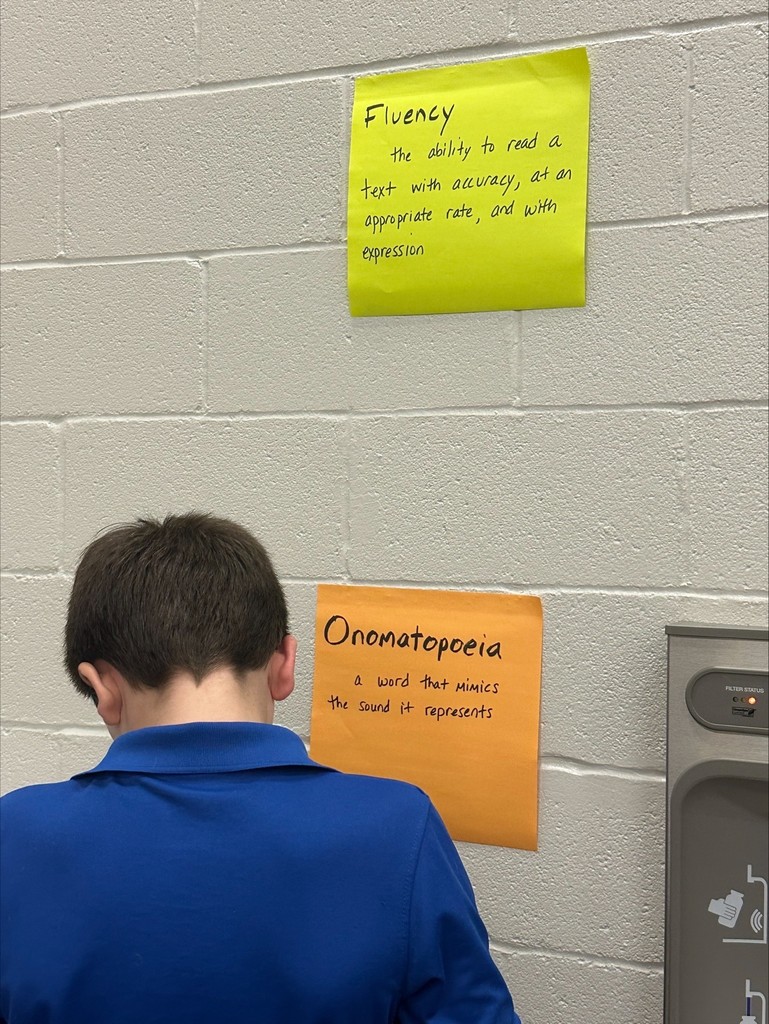 Fluency
the ability to read a
text with accuracy, at an
appropriate rate, and with
expression
Onomatopoeia
a word that mimics
the sound it represents
FILTER STATUS